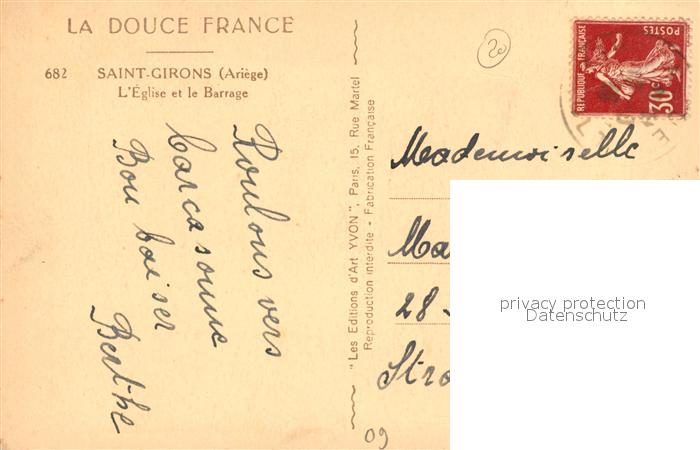 LA DOUCE FRANCE
682 SAINT-GIRONS (Ariège)
L'Église et le Barrage
Roulons vers
Carcasonne
Bon baiser
Berthe
"Les Editions d'Art YVON", Paris, 15, Rue Martel
Reproduction interdite - Fabrication Française
20
REPUBLIQUE FRANÇAISE
POSTES
30c
Mademoiselle
Ma
28
Stra
privacy protection
Datenschutz
09